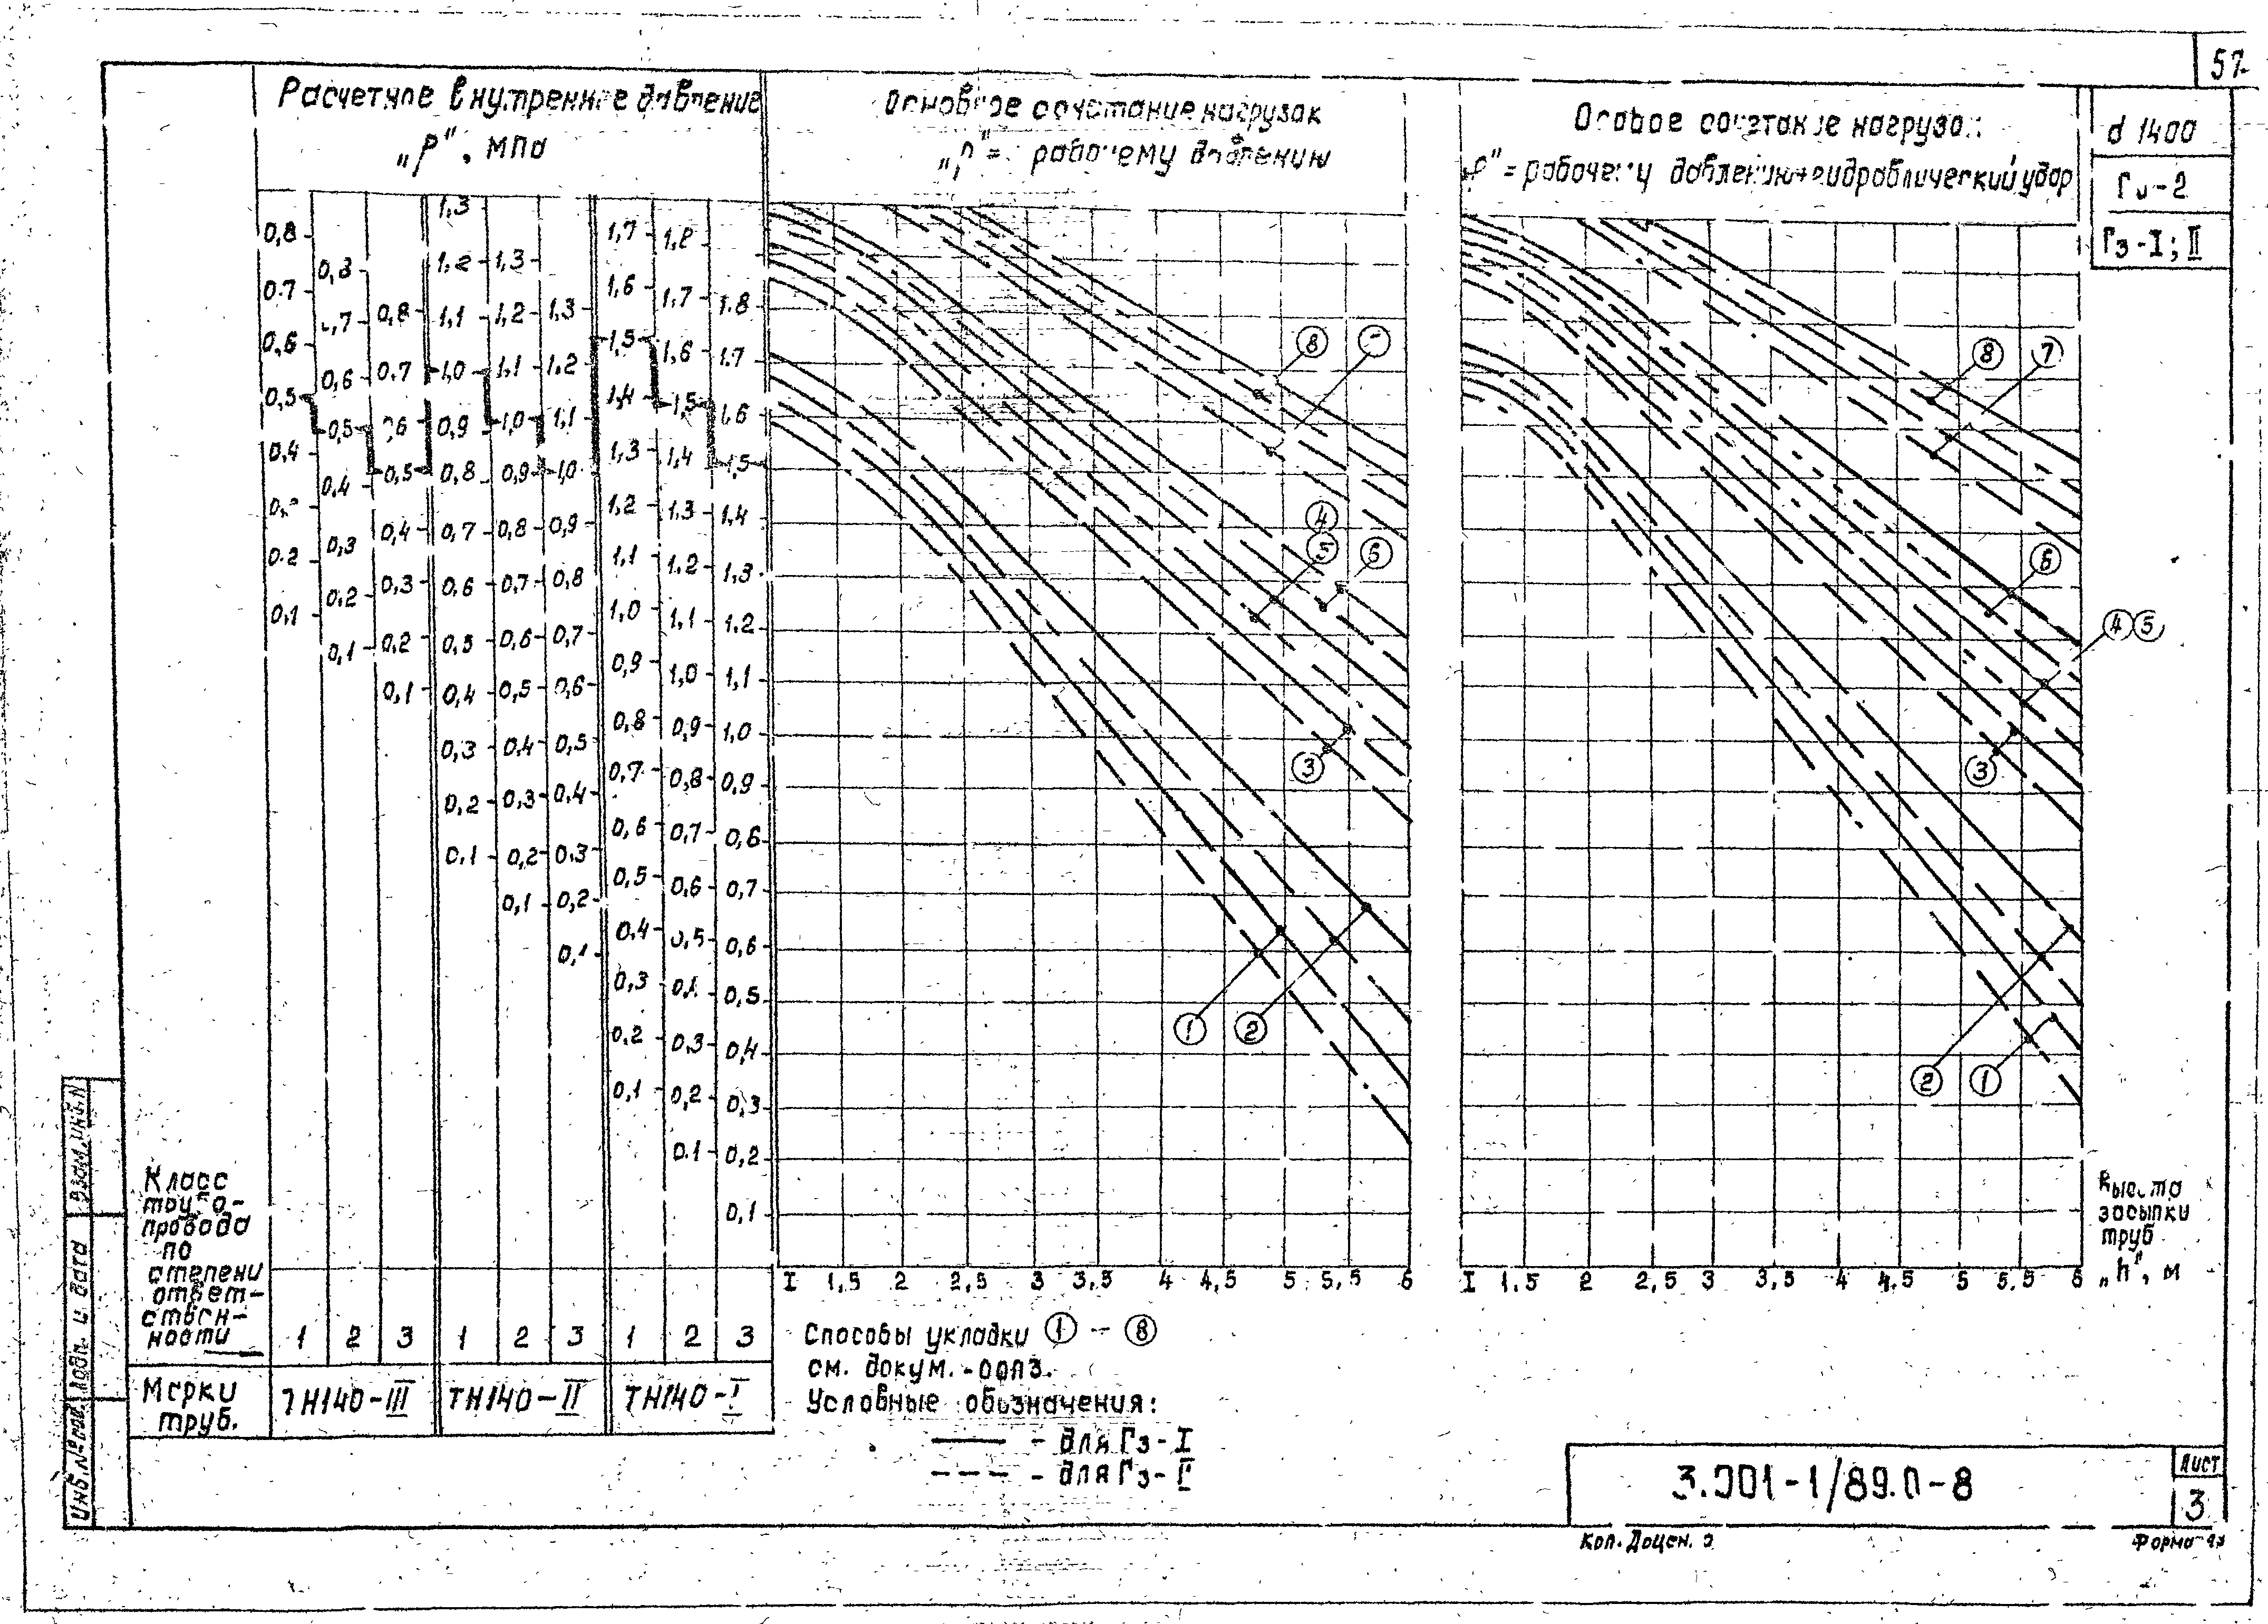 57
Расчетное внутреннее давление
„р", МПа
Основное сочетание нагрузок
„р" = рабочему давлению
Особое сочетание нагрузок:
„р" = рабочему давлению+гидравлический удар
d 1400
Гз-I; II
0,8
0,7
0,6
0,5
0,4
0.2
0,1
0,8
0,6
0,5
0,4
0,3
0,2
0,1
0,8
0.7
0,5
0,4
0,3
0,2
0,1
1,3
1,2
1,1
1,0
0,9
0,8
0,7
0,6
0,5
0,4
0,3
0,2
0,1
1,3
1,2
1,1
1,0
0,9
0,8
0,7
0,6
0,5
0,4
0,3
0,2
0,1
1,3
1,2
1,1
1,0
0,9
0,8
0,7
0,6
0,5
0,4
0,3
0,2
0,1
1,7
1,6
1,5
1,4
1,3
1,2
1,1
1,0
0,9
0,8
0,7
0,6
0,5
0,4
0,3
0,2
0,1
1,8
1,7
1,6
1,5
1,4
1,3
1.2
1,1
1,0
0,9
0,8
0,7
0,6
0,5
0,4
0,3
0,2
0.1
1.8
1.7
1,6
1,5
1,4
1,3
1.2
1,1
1,0
0,9
0,7
0,6
0,5
0,4
0,3
0,2
0,1
8
4
5
6
3
1
2
8
7
6
4 5
3
2
1
I 1,5 2 2,5 3 3,5 4 4,5 5 5,5 6
I 1.5 2 2,5 3 3,5 4 4,5 5 5,5 6
Высота
засыпки
труб
„h", м
Класс
трубо-
провода
по
степени
ответ-
ствен-
ности
1 2 3 1 2 3 1 2 3
Марки
труб.
ТН140-III ТН140-II ТН140-I
Способы укладки 1 – 8
см. докум. -00ПЗ.
Условные обозначения:
- для Гз-I
- для Гз-II
3.001-1/89.0-8
Лист
3
Взам. инв. N
Подп. и дата
Инв. № подл.
Коп.
Формат